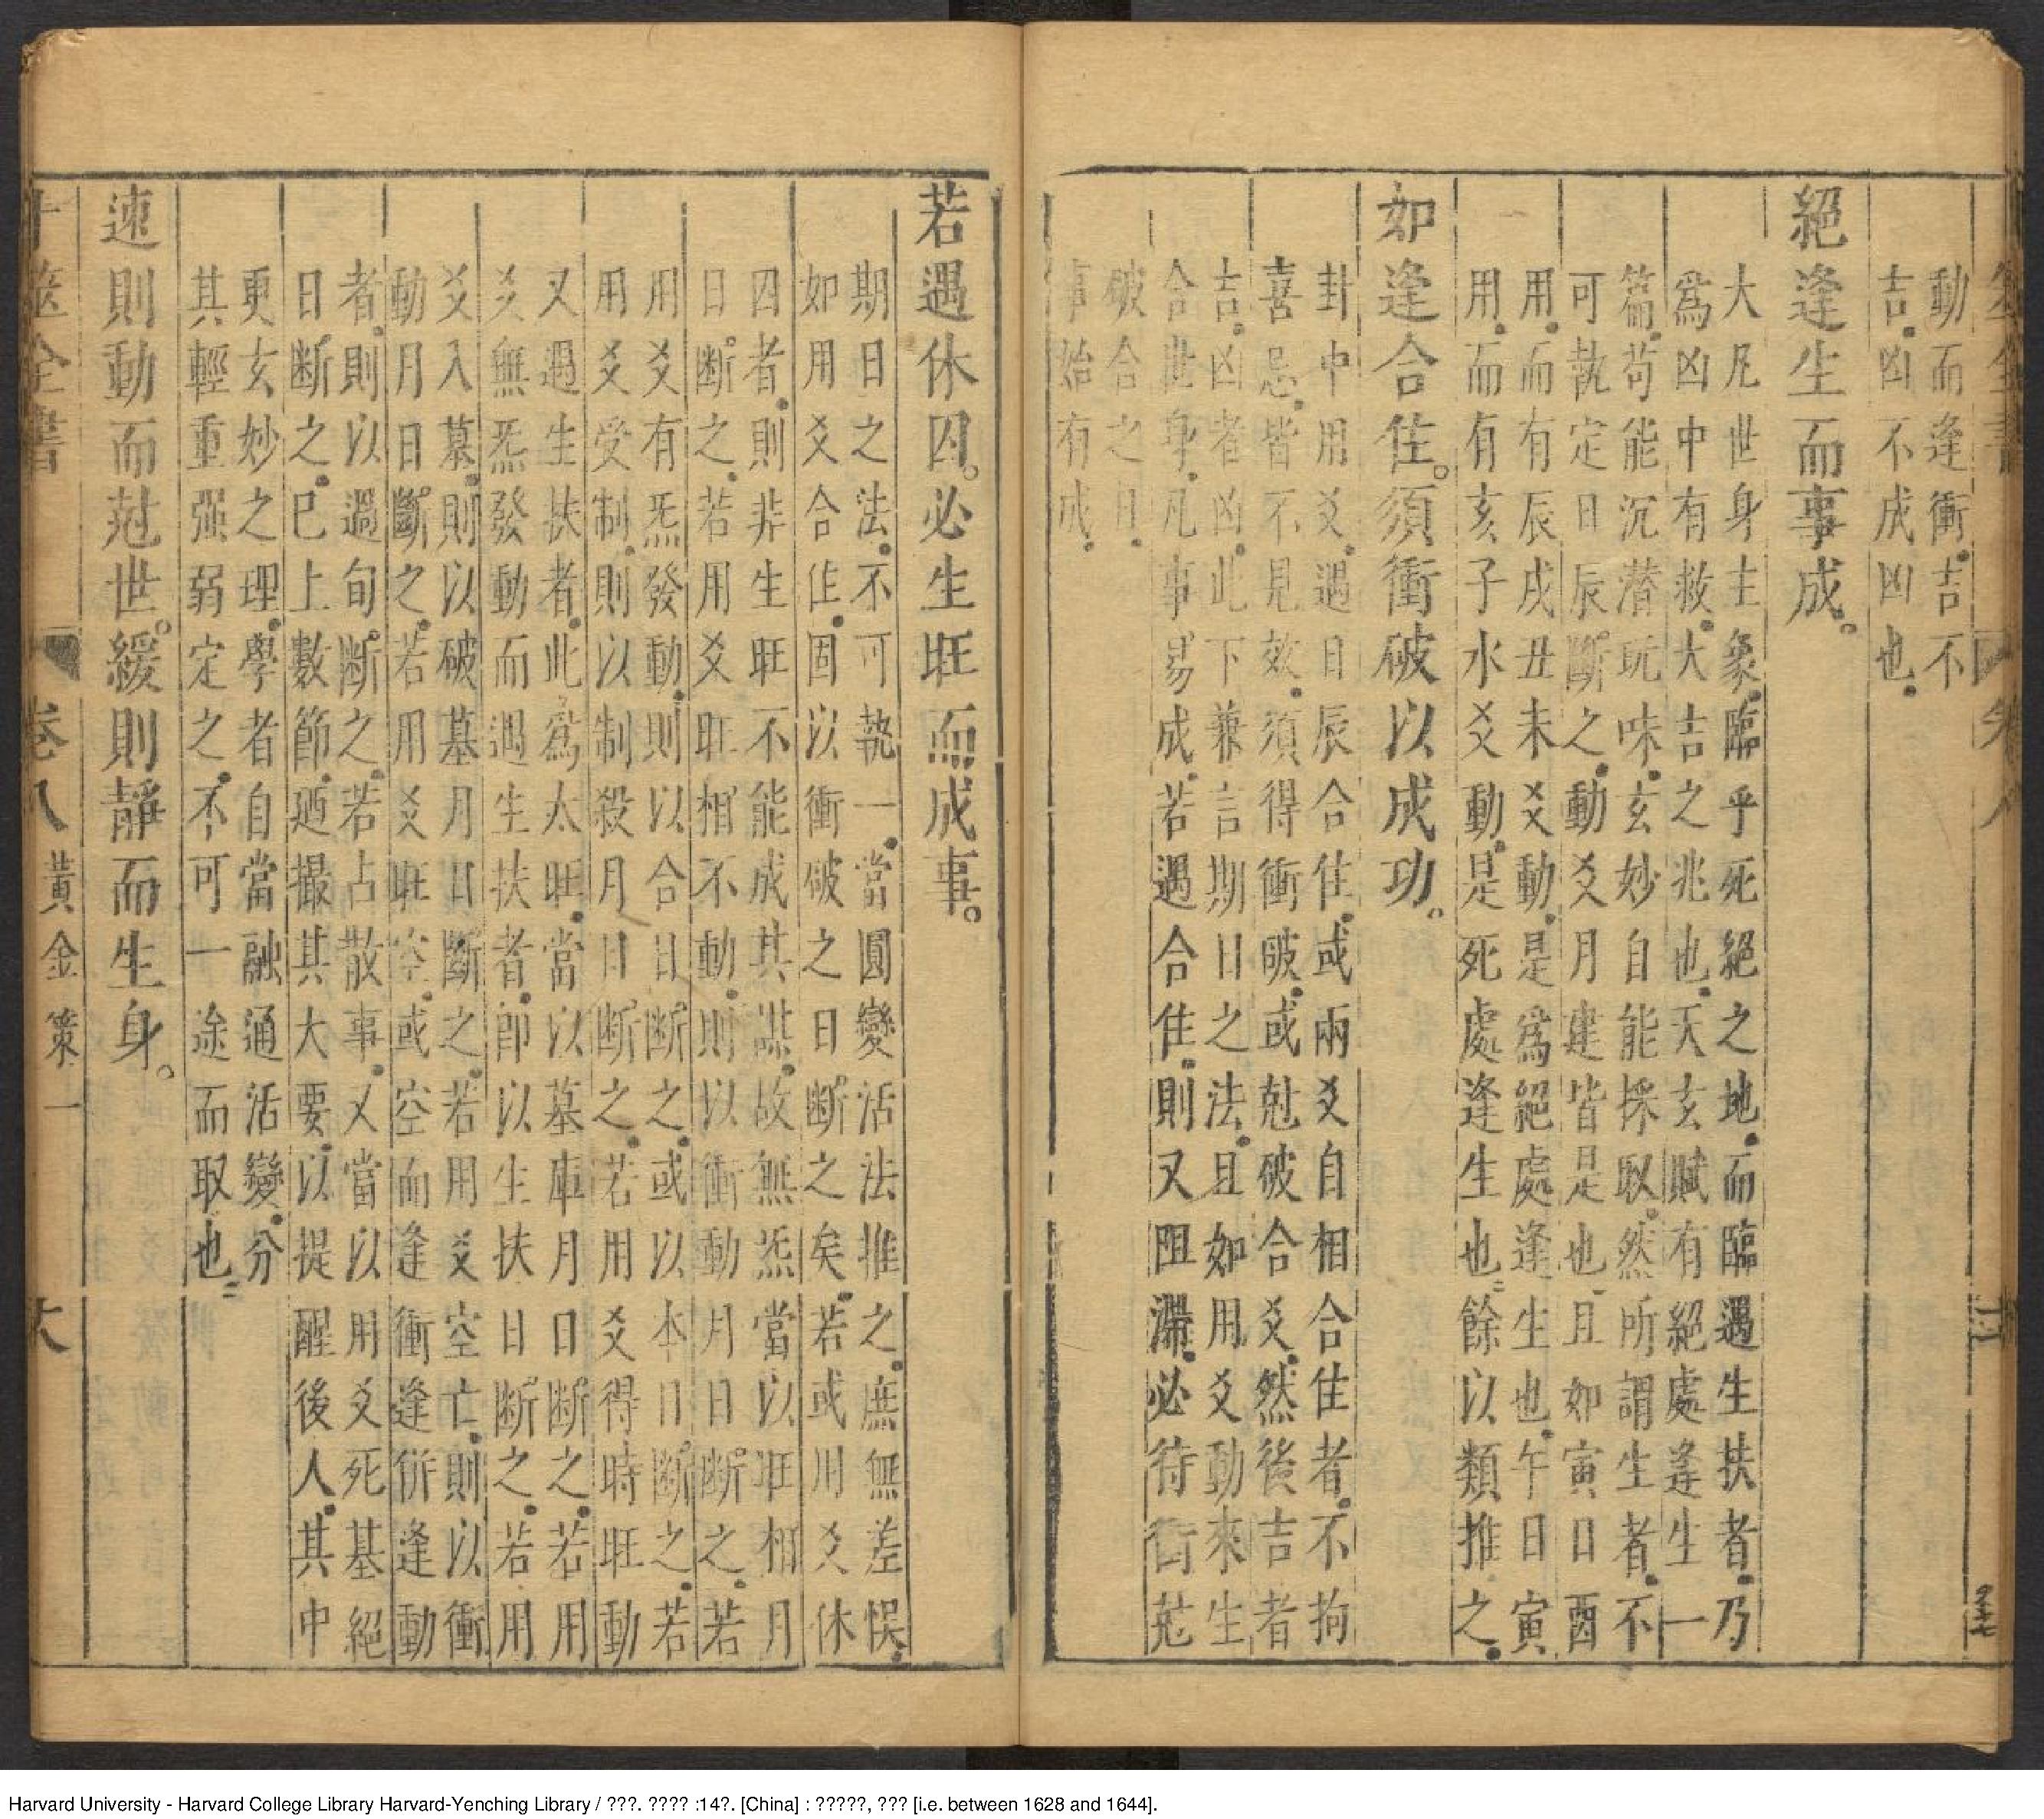 動而逢衝吉不
吉凶不成凶也
絕逢生而事成
大凡世身主象臨乎死絕之地而臨遇生扶者乃
爲凶中有救大吉之兆也天玄賦有絕處逢生一
篇苟能沉潛玩味玄妙自能採取然所謂生者不
可執定日辰斷之動爻月建皆是也且如寅日酉
用而有辰戌丑未爻動是爲絕處逢生也午日寅
用而有亥子水爻動是死處逢生也餘以類推之
如逢合住須衝破以成功
卦中用爻遇日辰合住或兩爻自相合住者不拘
喜忌皆不見效須得衝破或尅破合爻然後吉者
吉凶者凶此下兼言期日之法且如用爻動來生
合世身凡事易成若遇合住則又阻滯必待衝尅
破合之日
事始有成
若遇休囚必生旺而成事
期日之法不可執一當圓變活法推之庶無差悞
如用爻合住固以衝破之日斷之矣若或用爻休
囚者則非生旺不能成其謀故無炁當以旺相月
日斷之若用爻旺相不動則以衝動月日斷之若
用爻有炁發動則以合日斷之或以本日斷之若
用爻受制則以制殺月日斷之若用爻得時旺動
又遇生扶者此爲太旺當以墓庫月日斷之若用
爻無炁發動而遇生扶者卽以生扶日斷之若用
爻入墓則以破墓月日斷之若用爻空亡則以衝
動月日斷之若用爻旺空或空而逢衝逢併逢動
者則以過旬斷之若占散事又當以用爻死墓絕
日斷之巳上數節廼撮其大要以提醒後人其中
更玄妙之理學者自當融通活變分
其輕重强弱定之不可一途而取也
速則動而尅世緩則靜而生身
卜筮全書
卷八
黃金策一
大